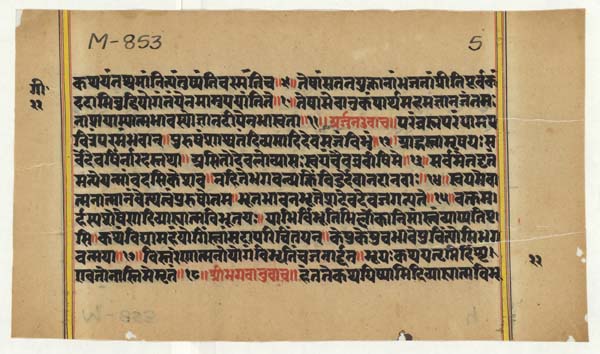 M-853
5
गी
२२
कथयंतश्चमांनित्यंतुष्यंतिचरमंतिच॥९॥तेषांसततयुक्तानांभजतांप्रीतिपूर्वकं
ददामिबुद्धियोगंतंयेनमामुपयांतिते॥१०॥तेषामेवानुकंपार्थमहमज्ञानजंतमः
नाशयाम्यात्मभावस्थोज्ञानदीपेनभास्वता॥११॥अर्जुनउवाच॥परंब्रह्मपरंधामप
वित्रंपरमंभवान्॥पुरुषंशाश्वतंदिव्यमादिदेवमजंविभुं॥१२॥आहुस्त्वामृषयःस
र्वेदेवर्षिर्नारदस्तथा॥असितोदेवलोव्यासःस्वयंचैवब्रवीषिमे॥१३॥सर्वमेतदृतं
मन्येयन्मांवदसिकेशव॥नहितेभगवन्व्यक्तिंविदुर्देवानदानवाः॥१४॥स्वयमेवा
त्मनात्मानंवेत्थत्वंपुरुषोत्तम॥भूतभावनभूतेशदेवदेवजगत्पते॥१५॥वक्तुम
र्हस्यशेषेणदिव्याह्यात्मविभूतयः॥याभिर्विभूतिभिर्लोकानिमांस्त्वंव्याप्यतिष्ठ
सि॥कथंविद्यामहंयोगिंस्त्वांसदापरिचिंतयन्॥केषुकेषुचभावेषुचिंत्योसिभग
वन्मया॥१७॥विस्तरेणात्मनोयोगंविभूतिंचजनार्दन॥भूयःकथयतृप्तिर्हिशृ
ण्वतोनास्तिमेमृतं॥१८॥श्रीभगवानुवाच॥हंततेकथयिष्यामिदिव्याह्यात्मविभू
२२